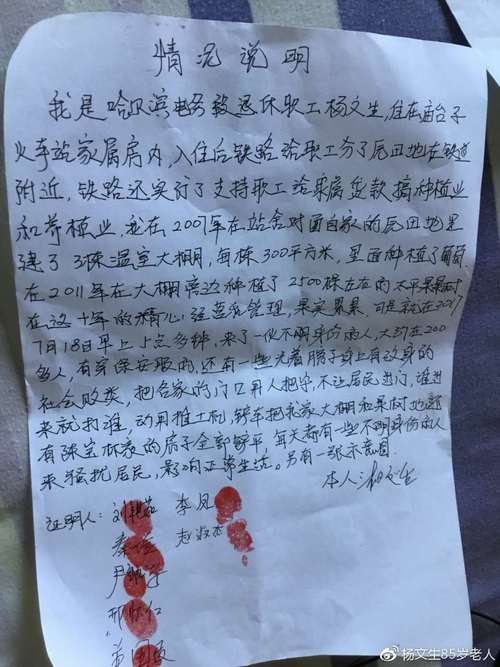 情况说明
我是哈尔滨电务段退休职工杨文生,住在庙台子
火车站家属房内,入住后铁路给职工分了瓦田地在铁道
附近,铁路还实行了支持职工给家属贷款搞种植业
和养植业,我在2007年在站舍对面自家的瓦田地里
建了3栋温室大棚,每栋300平方米,里面种植了葡萄
在2011年在大棚旁边种植了2500棵左右的太平果果树
在这十年的精心管理,果实累累,可是就在2017
7月18日早上5点多钟,来了一伙不明身份的人,大约在200
多人,有穿保安服的,还有一些光着膀子身上有纹身的
社会败类,把各家的门口用人把守,不让居民出门,谁出
来就打谁,动用推土机,铲车把我家大棚和果树地还
有陈宝林家的房子全部铲平,每天都有一些不明身份的人
来骚扰居民,影响正常生活。另有一张示意图
本人:杨文生
证明人: 李凤
赵淑杰
@杨文生85岁老人